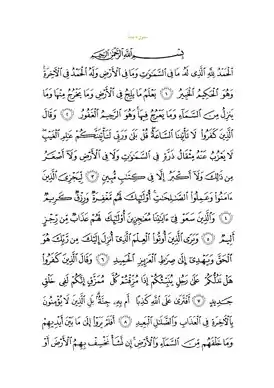 سورة سبأ
بِسْمِ اللَّهِ الرَّحْمَٰنِ الرَّحِيمِ
الْحَمْدُ لِلَّهِ الَّذِي لَهُ مَا فِي السَّمَٰوَٰتِ وَمَا فِي الْأَرْضِ وَلَهُ الْحَمْدُ فِي الْآخِرَةِ
وَهُوَ الْحَكِيمُ الْخَبِيرُ ﴿١﴾ يَعْلَمُ مَا يَلِجُ فِي الْأَرْضِ وَمَا يَخْرُجُ مِنْهَا وَمَا
يَنزِلُ مِنَ السَّمَاءِ وَمَا يَعْرُجُ فِيهَا وَهُوَ الرَّحِيمُ الْغَفُورُ ﴿٢﴾ وَقَالَ
الَّذِينَ كَفَرُوا لَا تَأْتِينَا السَّاعَةُ قُلْ بَلَىٰ وَرَبِّي لَتَأْتِيَنَّكُمْ عَٰلِمِ الْغَيْبِ
لَا يَعْزُبُ عَنْهُ مِثْقَالُ ذَرَّةٍ فِي السَّمَٰوَٰتِ وَلَا فِي الْأَرْضِ وَلَا أَصْغَرُ
مِن ذَٰلِكَ وَلَا أَكْبَرُ إِلَّا فِي كِتَٰبٍ مُّبِينٍ ﴿٣﴾ لِّيَجْزِيَ الَّذِينَ
ءَامَنُوا وَعَمِلُوا الصَّٰلِحَٰتِ أُولَٰئِكَ لَهُم مَّغْفِرَةٌ وَرِزْقٌ كَرِيمٌ
﴿٤﴾ وَالَّذِينَ سَعَوْ فِي ءَايَٰتِنَا مُعَٰجِزِينَ أُولَٰئِكَ لَهُمْ عَذَابٌ مِّن رِّجْزٍ
أَلِيمٌ ﴿٥﴾ وَيَرَى الَّذِينَ أُوتُوا الْعِلْمَ الَّذِي أُنزِلَ إِلَيْكَ مِن رَّبِّكَ هُوَ
الْحَقَّ وَيَهْدِي إِلَىٰ صِرَٰطِ الْعَزِيزِ الْحَمِيدِ ﴿٦﴾ وَقَالَ الَّذِينَ كَفَرُوا
هَلْ نَدُلُّكُمْ عَلَىٰ رَجُلٍ يُنَبِّئُكُمْ إِذَا مُزِّقْتُمْ كُلَّ مُمَزَّقٍ إِنَّكُمْ لَفِي خَلْقٍ
جَدِيدٍ ﴿٧﴾ أَفْتَرَىٰ عَلَى اللَّهِ كَذِبًا أَم بِهِ جِنَّةٌ بَلِ الَّذِينَ لَا يُؤْمِنُونَ
بِالْآخِرَةِ فِي الْعَذَابِ وَالضَّلَٰلِ الْبَعِيدِ ﴿٨﴾ أَفَلَمْ يَرَوْا إِلَىٰ مَا بَيْنَ أَيْدِيهِمْ
وَمَا خَلْفَهُم مِّنَ السَّمَاءِ وَالْأَرْضِ إِن نَّشَأْ نَخْسِفْ بِهِمُ الْأَرْضَ أَوْ